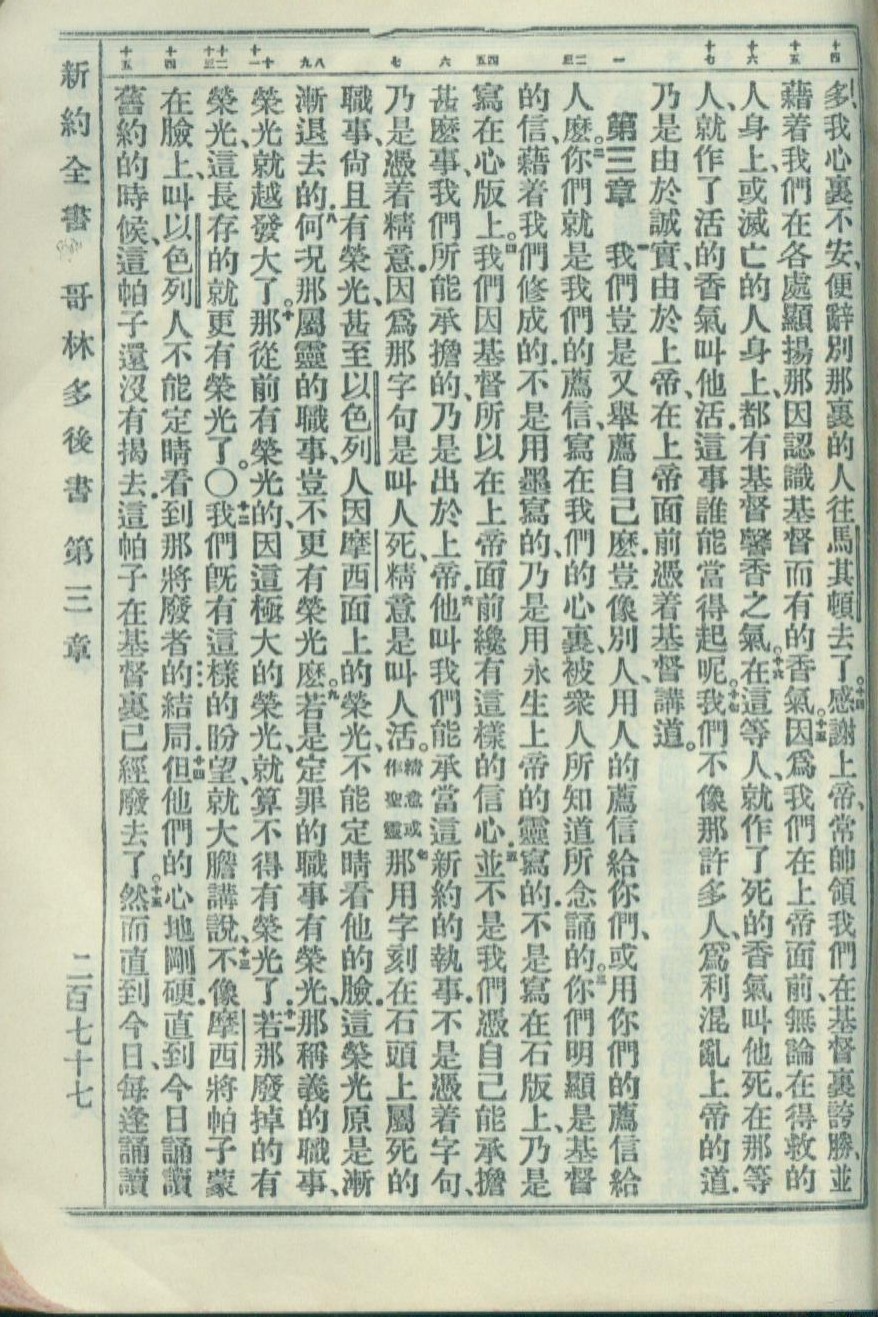 十四 十五 十六 十七 一 二 三 四 五 六 七 八 九 十 十一 十二 十三 十四 十五
多、我心裏不安、便辭別那裏的人往馬其頓去了。十四感謝上帝、常帥領我們在基督裏誇勝、並
藉着我們在各處顯揚那因認識基督而有的香氣。十五因爲我們在上帝面前、無論在得救的
人身上、或滅亡的人身上、都有基督馨香之氣。十六在這等人、就作了死的香氣叫他死．在那等
人、就作了活的香氣叫他活．這事誰能當得起呢。十七我們不像那許多人、爲利混亂上帝的道．
乃是由於誠實、由於上帝、在上帝面前憑着基督講道。
第三章 一我們豈是又舉薦自己麽．豈像別人、用人的薦信給你們、或用你們的薦信給
人麽。二你們就是我們的薦信、寫在我們的心裏、被衆人所知道所念誦的。三你們明顯是基督
的信、藉着我們修成的．不是用墨寫的、乃是用永生上帝的靈寫的．不是寫在石版上、乃是
寫在心版上。四我們因基督、所以在上帝面前纔有這樣的信心．五並不是我們憑自己能承擔
甚麽事、我們所能承擔的、乃是出於上帝．六他叫我們能承當這新約的執事．不是憑着字句、
乃是憑着精意．因爲那字句是叫人死、精意是叫人活。精意或作聖靈七那用字刻在石頭上屬死的
職事、尙且有榮光、甚至以色列人因摩西面上的榮光、不能定睛看他的臉．這榮光原是漸
漸退去的．八何況那屬靈的職事、豈不更有榮光麽。九若是定罪的職事有榮光、那稱義的職事、
榮光就越發大了。十那從前有榮光的、因這極大的榮光、就算不得有榮光了．十一若那廢掉的有
榮光、這長存的就更有榮光了。〇十二我們旣有這樣的盼望、就大膽講說、十三不像摩西將帕子蒙
在臉上、叫以色列人不能定睛看到那將廢者的結局．十四但他們的心地剛硬．直到今日誦讀
舊約的時候、這帕子還沒有揭去．這帕子在基督裏已經廢去了。十五然而直到今日、每逢誦讀
新約全書 哥林多後書 第三章 二百七十七